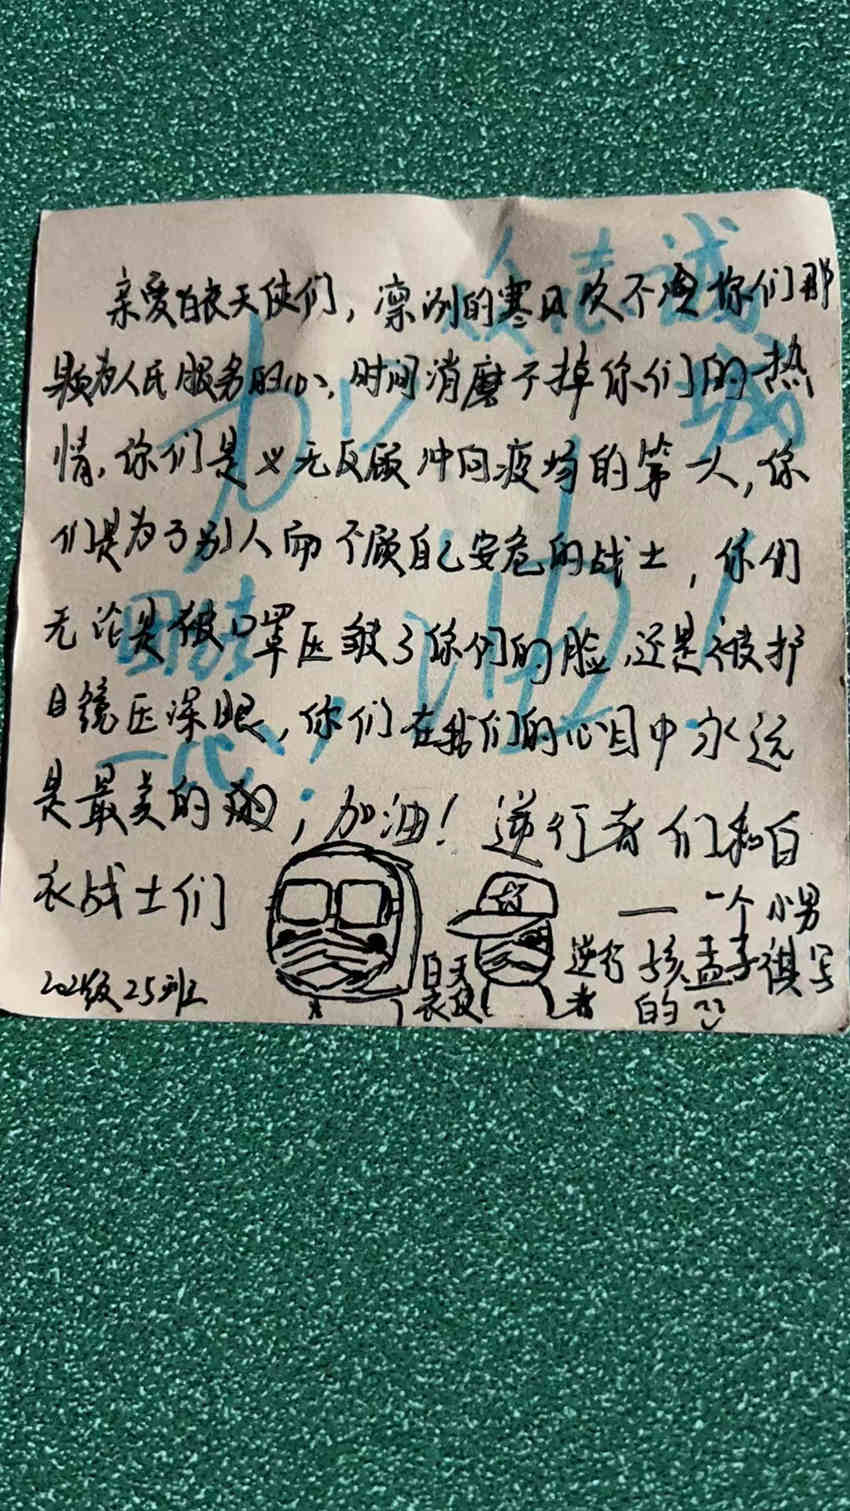 亲爱白衣天使们，凛冽的寒风吹不凉你们那
颗为人民服务的心，时间消磨不掉你们的热
情，你们是义无反顾冲向疫场的第一人，你
们是为了别人而不顾自己安危的战士，你们
无论是被口罩压皱了你们的脸，还是被护
目镜压深眼，你们在我们的心目中永远
是最美的，；加油！逆行者们和白
衣战士们
——一个小男
孩孟子祺写
的
2021级25班
白衣天使
逆行者
众志成城
加油！
团结
一心；